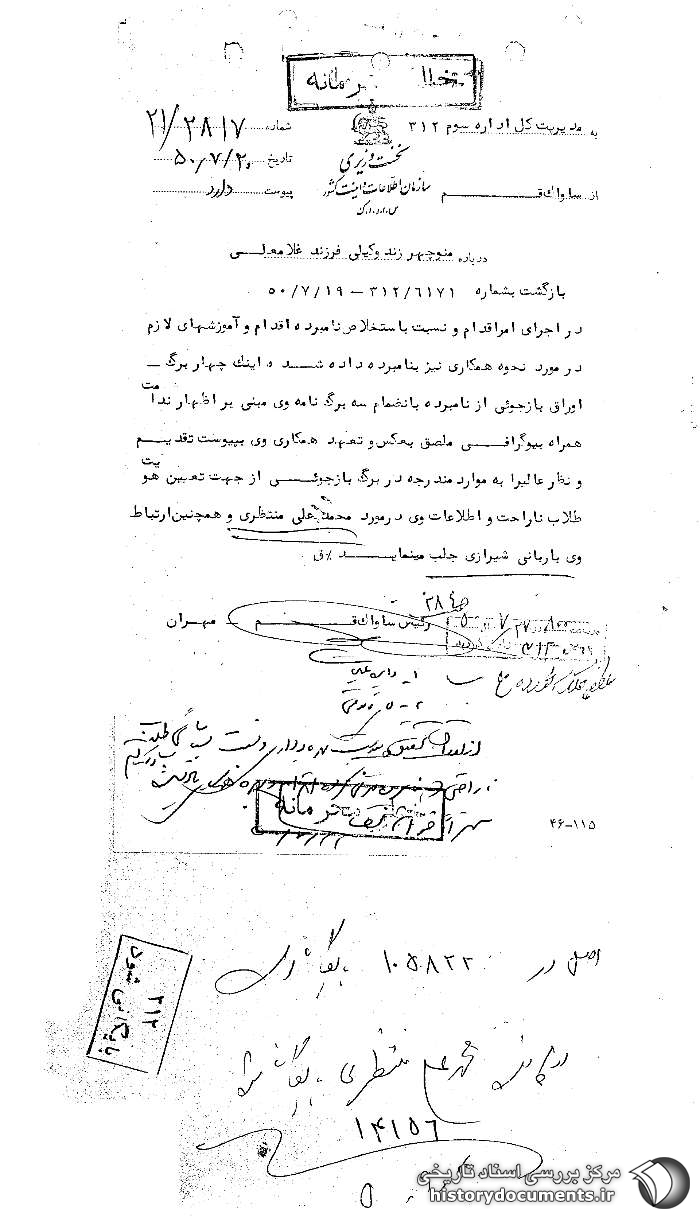 خیلی محرمانه
به مدیریت کل اداره سوم ۳۱۲
شماره ۲۱/۲۸۱۷
نخست وزیری
تاریخ ۵۰/۷/۲۰
سازمان اطلاعات و امنیت کشور
از ساواک قم
پیوست دارد
س.ا.و.ا.ک
درباره منوچهر زند وکیلی فرزند غلامعلی
بازگشت بشماره ۳۱۲/۶۱۷۱ – ۵۰/۷/۱۹
در اجرای امر اقدام و نسبت باستخلاص نامبرده اقدام و آموزشهای لازم
در مورد نحوه همکاری نیز بنامبرده داده شد و اینک چهار برگ
اوراق بازجوئی از نامبرده بانضمام سه برگ نامه وی مبنی بر اظهار ندامت
همراه بیوگرافی ملصق بعکس و تعهد همکاری وی بپیوست تقدیم
و نظر عالیرا به موارد مندرجه در برگ بازجوئی از جهت تعیین هویت
طلاب ناراحت و اطلاعات وی در مورد محمد علی منتظری و همچنین ارتباط
وی با ربانی شیرازی جلب مینماید
رئیس ساواک قم – مهران
خیلی محرمانه
۴۶-۱۱۵
اصل در ۱۰۵۸۲۲ بایگانی
۳۱۲
بایگانی شود
در پرونده محمد علی منتظری بایگانی شود
۱۴۱۵۶
مرکز بررسی اسناد تاریخی
historydocuments.ir